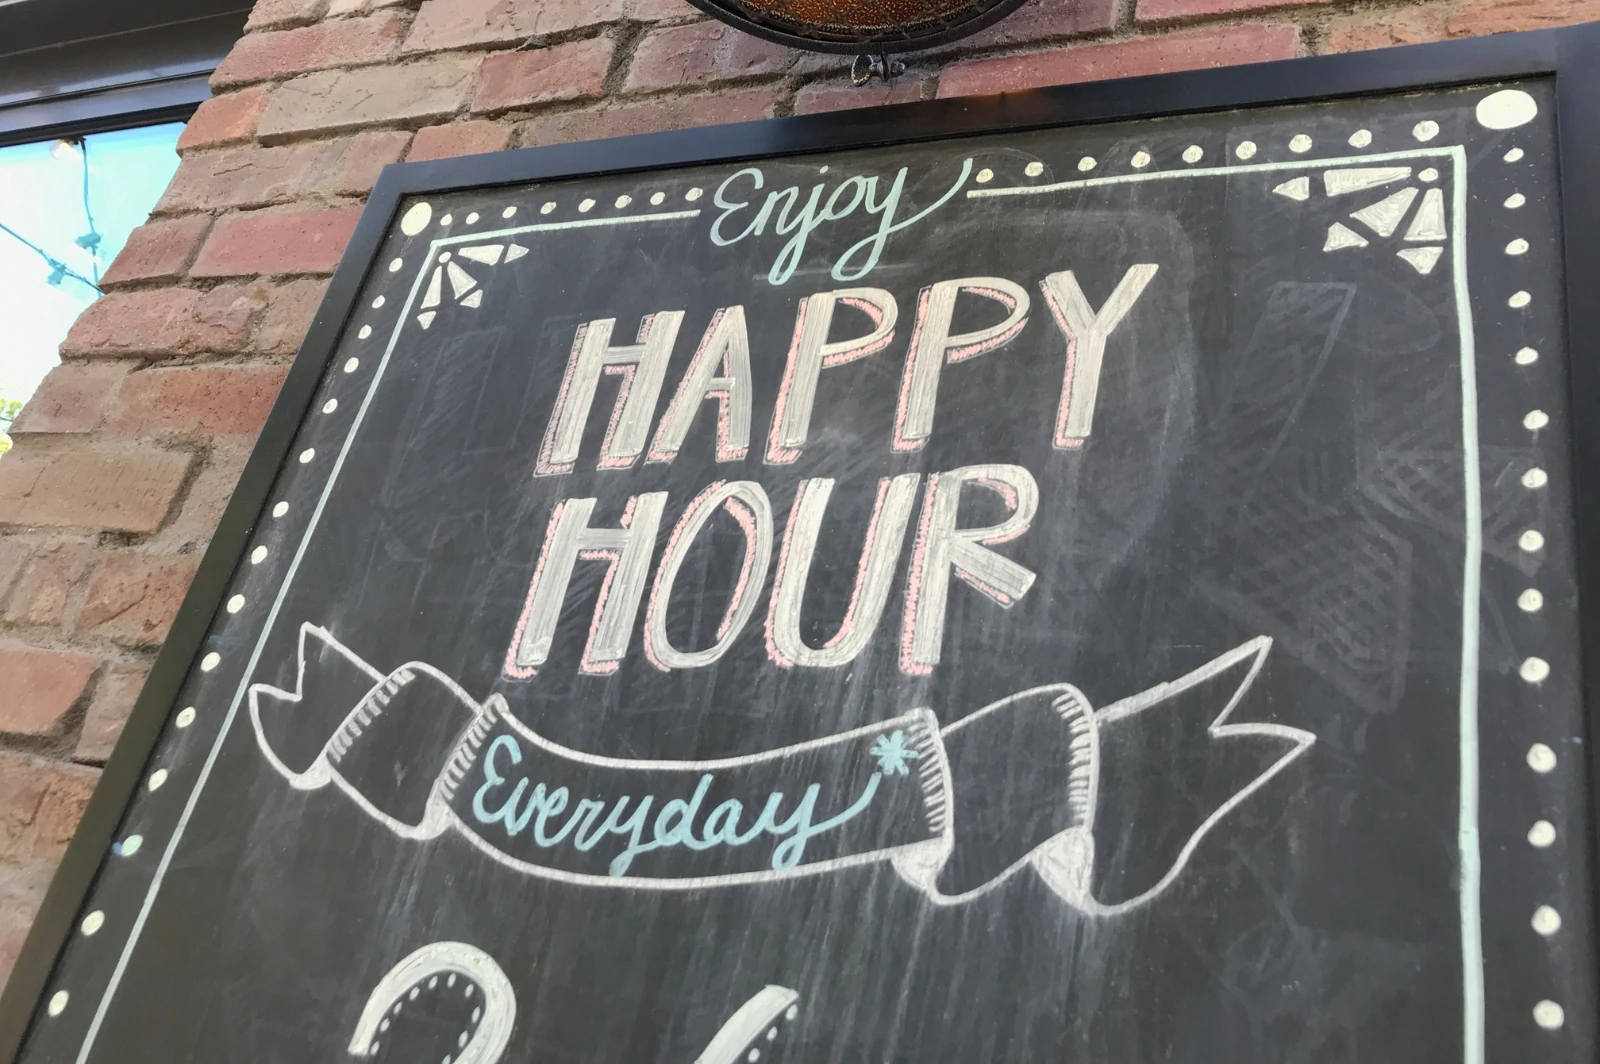 Enjoy
HAPPY
HOUR
Everyday